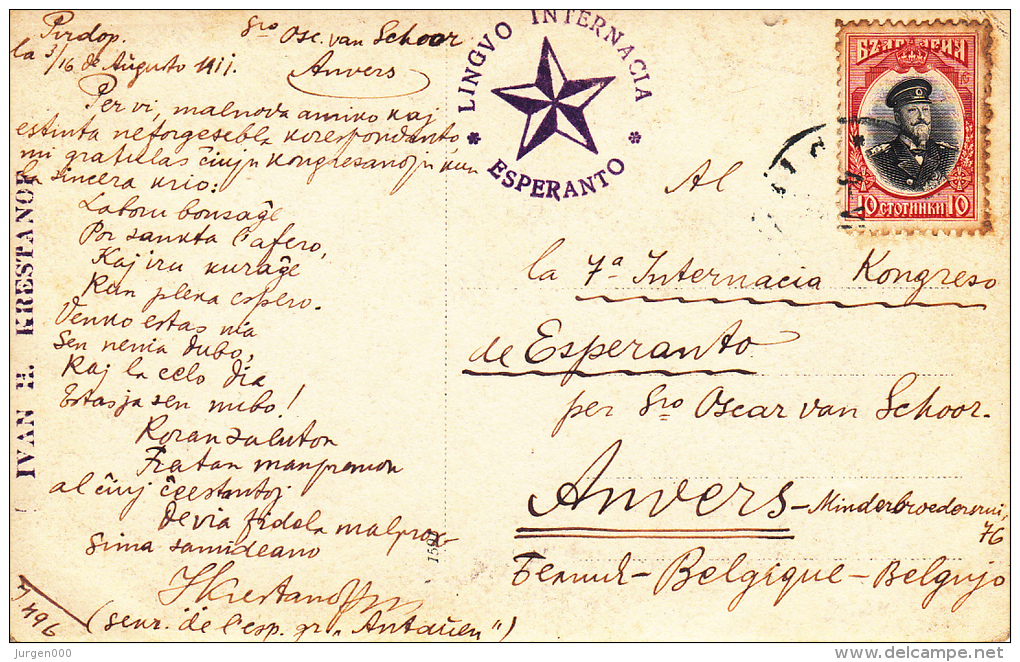 Pirdop.
la 3/16 de Aŭgusto 1911.
Sro Osc. van Schoor
Anvers
Per vi, malnova amiko kaj
estinta neforgesebla korespondanto,
mi gratulas ĉiujn kongresanojn kun
la sincera krio:
Laboru bonsaĝe
Por sankta l'afero,
Kaj iru kuraĝe
Kun plena espero.
Venko estas nia
Sen nenia dubo,
Kaj la celo dia
Estas ja sen nubo!
Koran saluton
Fratan manpremon
al ĉiuj ĉeestantoj
De via fidela malprok-
sima samideano
IKrestanoff
(senr. de l'esp. gr. „Antaŭen")
IVAN H. KRESTANOF
N 496
LINGVO INTERNACIA
* ESPERANTO *
БЪЛГАРИЯ
10 СТОТИНКИ 10
Al
la 7a Internacia Kongreso
de Esperanto
per Sro Oscar van Schoor.
Anvers - Minderbroedersrui,
76
Белгия - Belgique - Belgujo
jurgen000
delcampe.net